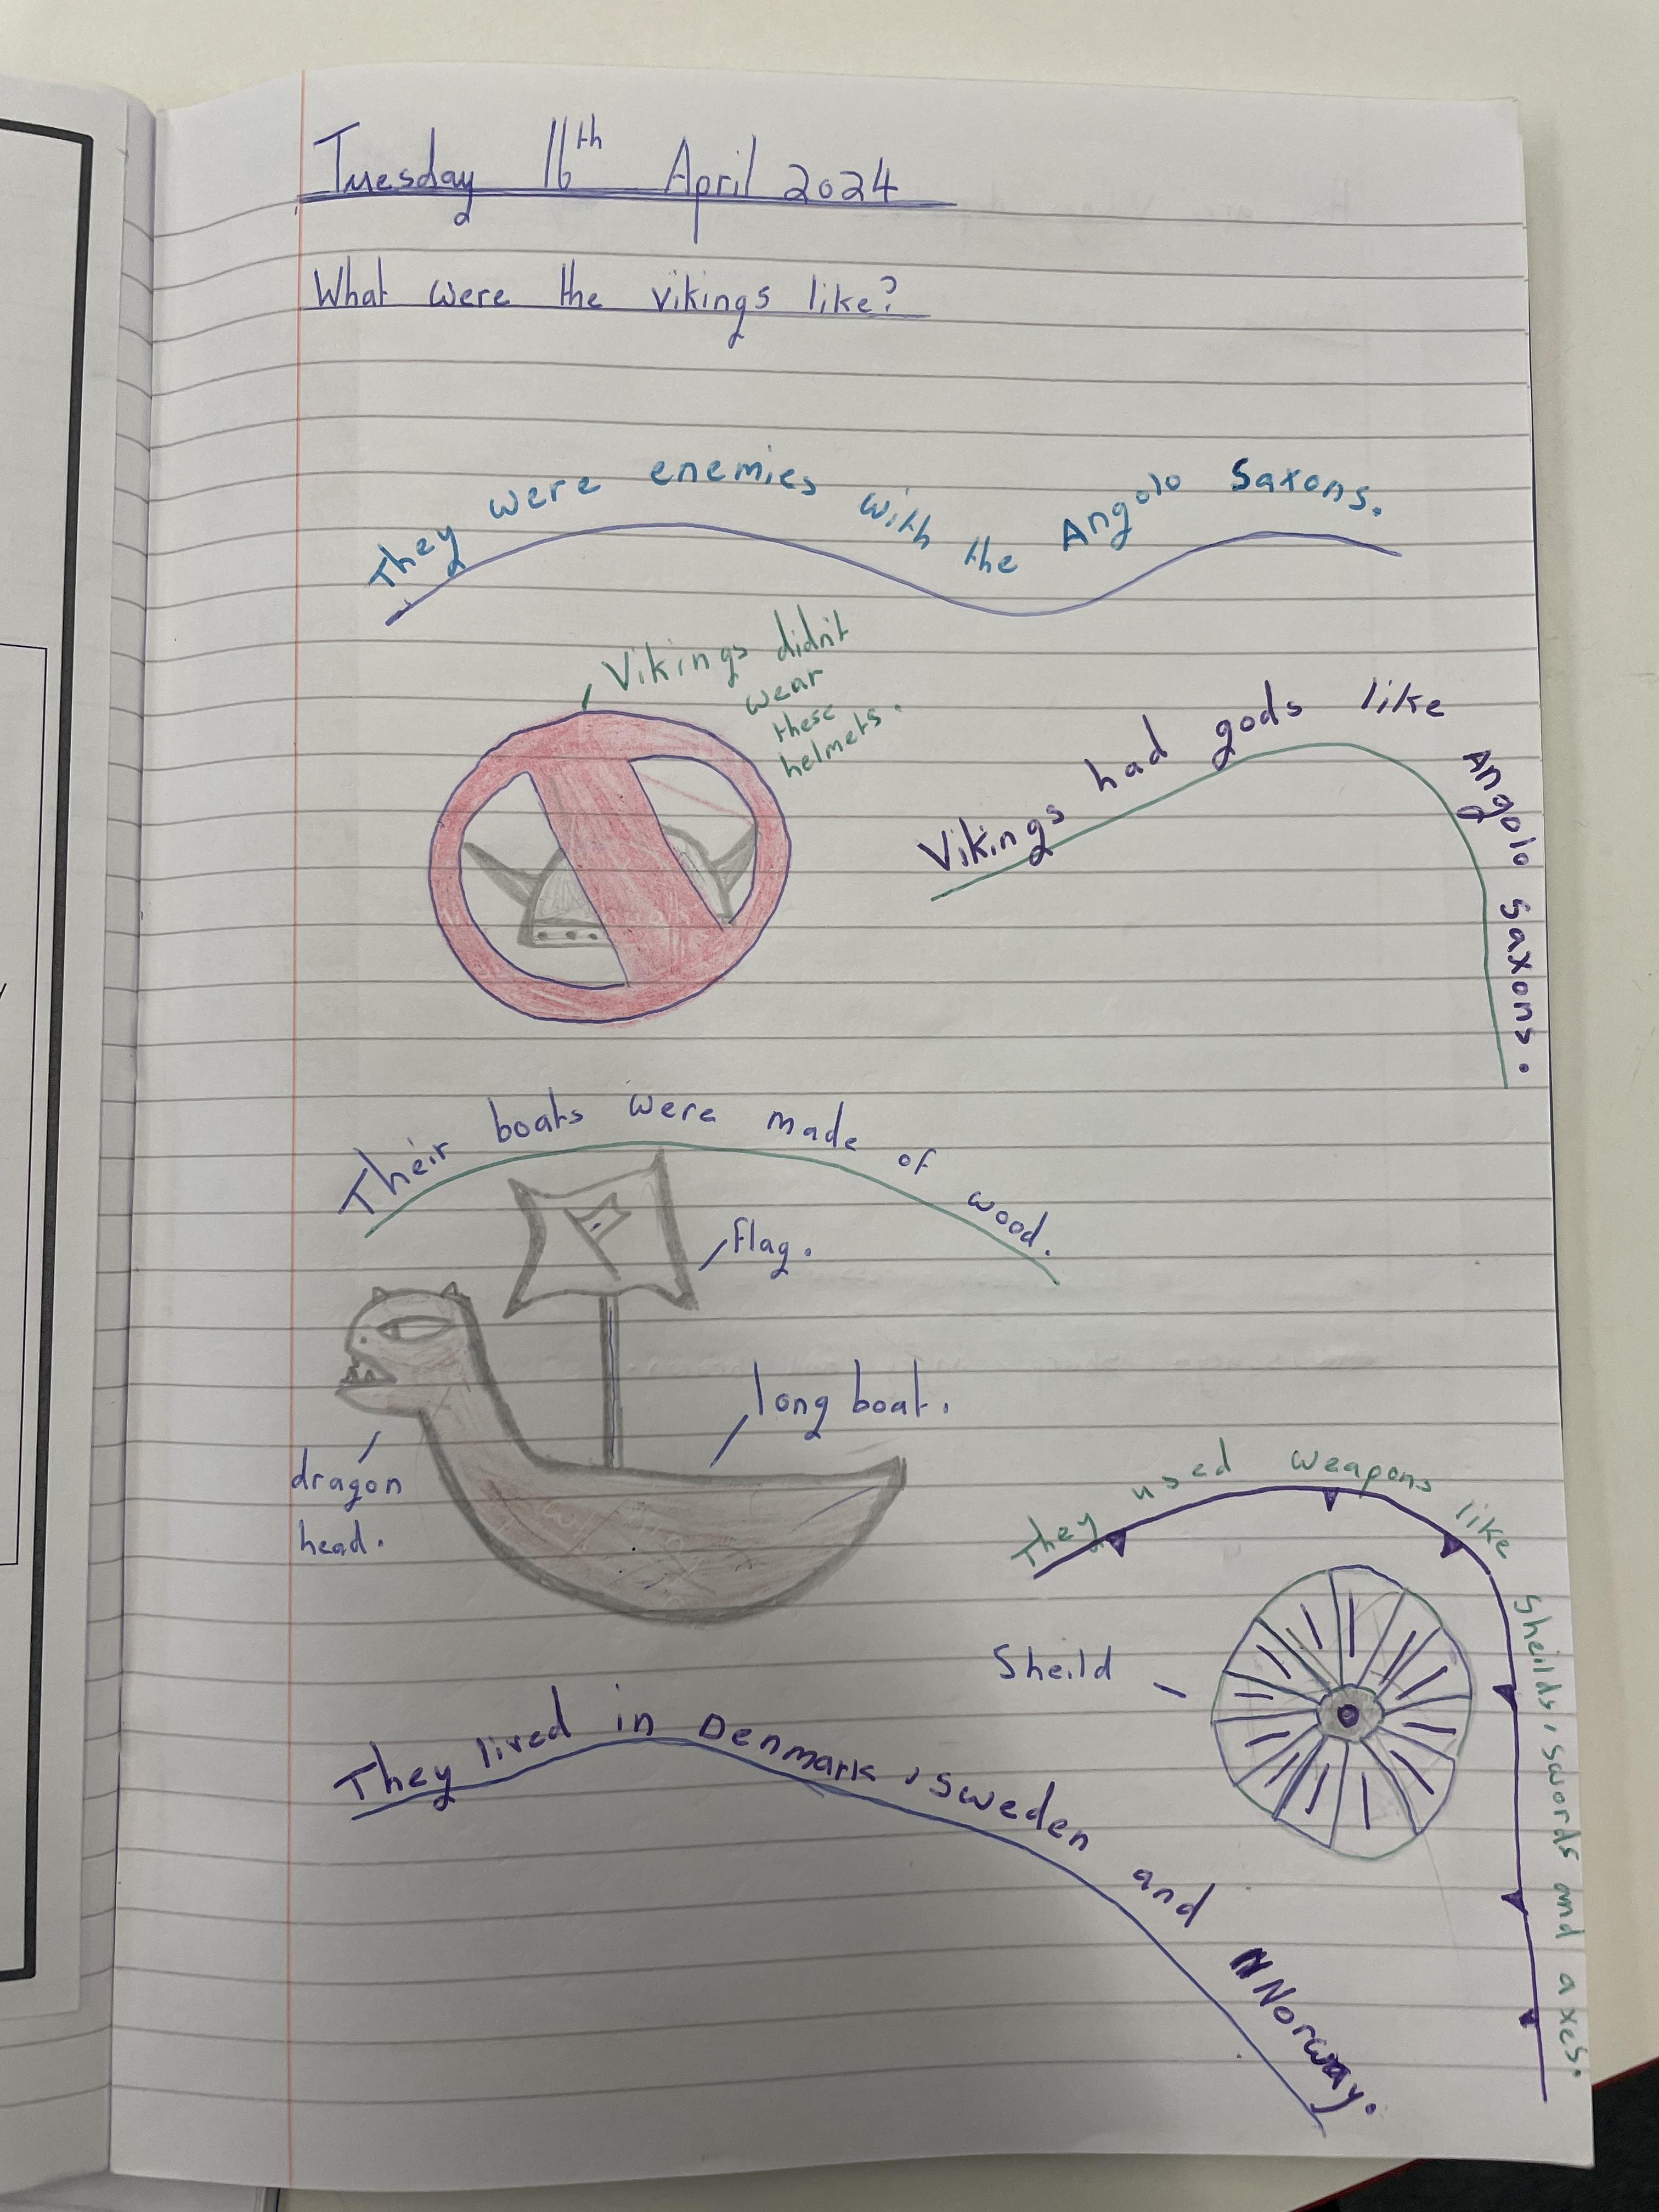 Tuesday 16th April 2024
What were the vikings like?
They were enemies with the Angolo Saxons.
Vikings didn't
wear
these
helmets.
Vikings had gods like Angolo Saxons.
Their boats were made of wood.
flag.
long boat.
dragon
head.
They used weapons like Sheilds, swords and axes.
Sheild
They lived in Denmark, Sweden and Norway.